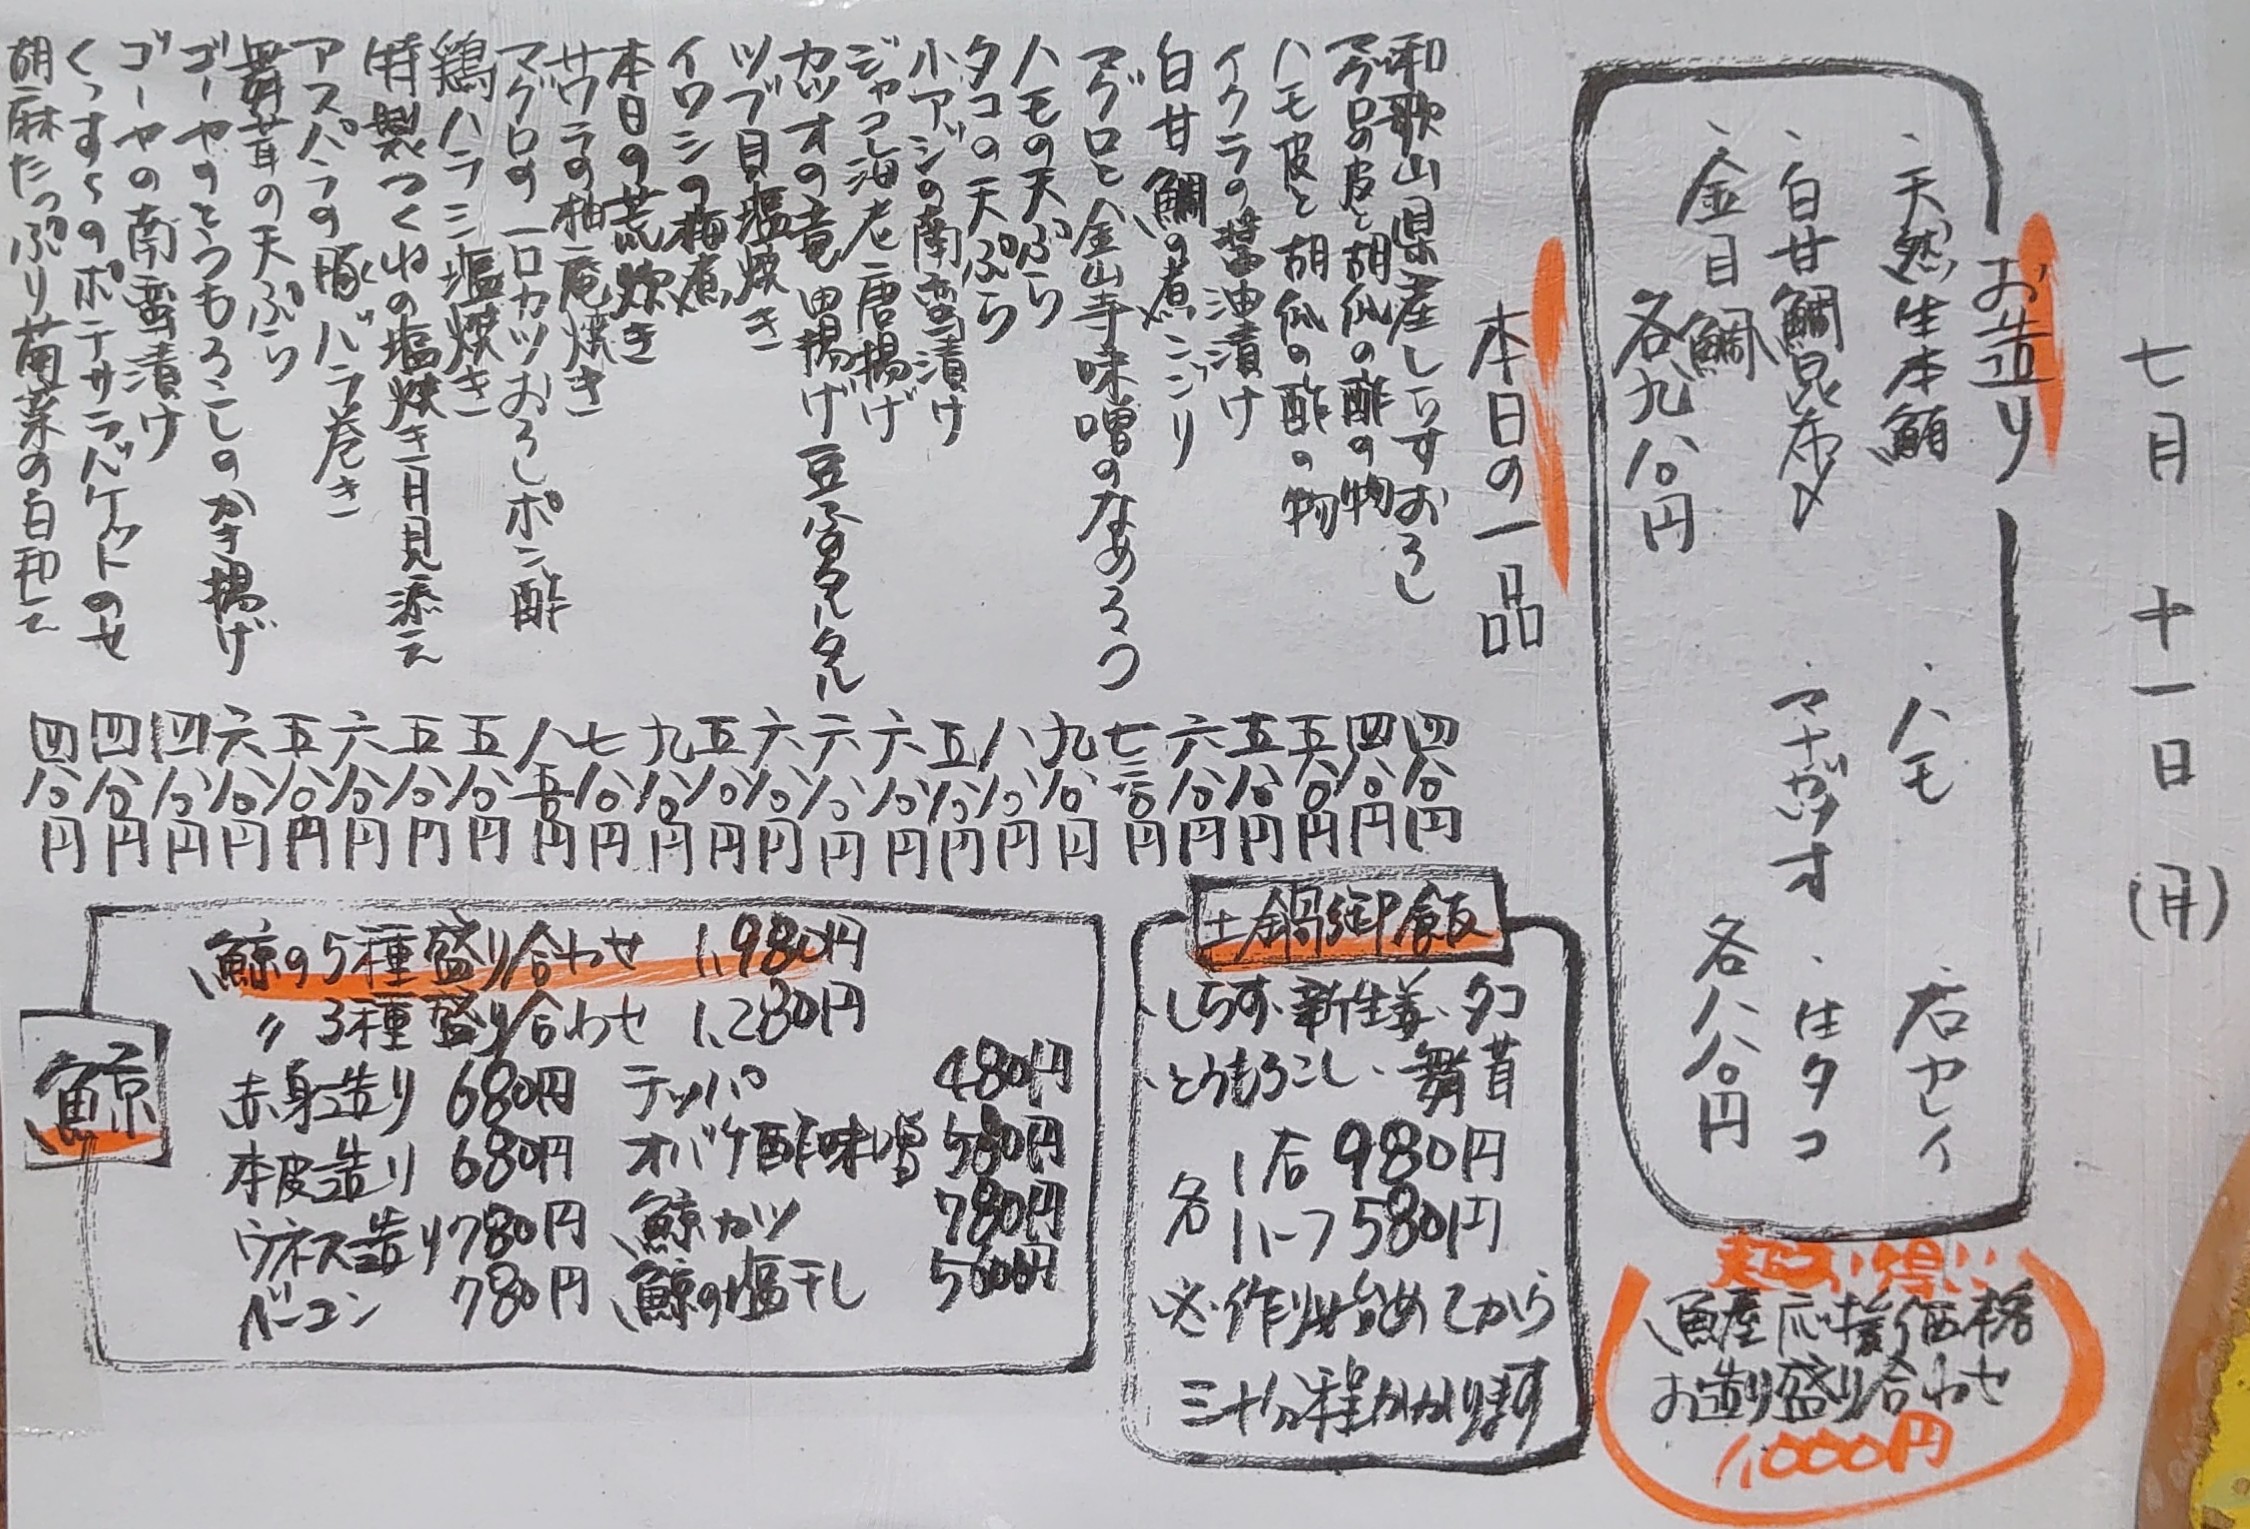 七月 十一日 (月)
お造り
・天然生本鮪 ・ハモ ・石セイ
・白甘鯛昆布〆 ・マナガツオ ・生タコ
・金目鯛
各九八〇円 各八八〇円
超お得!!
魚屋応援価格
お造り盛り合わせ
1,000円
本日の一品
和歌山県産しらすおろし 四八〇円
マグロの皮と胡瓜の酢の物 四八〇円
ハモ皮と胡瓜の酢の物 五八〇円
イクラの醤油漬け 五八〇円
白甘鯛の煮こごり 六八〇円
マグロと金山寺味噌のなめろう 七三〇円
ハモの天ぷら 九八〇円
タコの天ぷら 八八〇円
小アジの南蛮漬け 五八〇円
ジャコ海老唐揚げ 六八〇円
カツオの竜田揚げ豆ふのタルタル 六八〇円
ツブ貝塩焼き 六八〇円
イワシの梅煮 五八〇円
本日の荒炊き 九八〇円
サワラの柚庵焼き 七八〇円
マグロの一口カツおろしポン酢 八五〇円
鶏ハラミ塩焼き 五八〇円
特製つくねの塩焼き月見添え 五八〇円
アスパラの豚バラ巻き 六八〇円
舞茸の天ぷら 五八〇円
ゴーヤのとうもろこしのかき揚げ 六八〇円
ゴーヤの南蛮漬け 四八〇円
くっすくのポテサラバケットのせ 四八〇円
胡麻たっぷり菊菜の白和え 四八〇円
土鍋御飯
・しらす・新生姜・タコ
・とうもろこし・舞茸
各 1合 980円
ハーフ 580円
※作り始めてから
三十分程かかります
鯨
鯨の5種盛り合わせ 1,980円
〃 3種盛り合わせ 1,280円
赤身造り 680円 テッパ 480円
本皮造り 680円 オバケ酢味噌 580円
ウネス造り 780円 鯨カツ 780円
ベーコン 780円 鯨の塩干し 500円